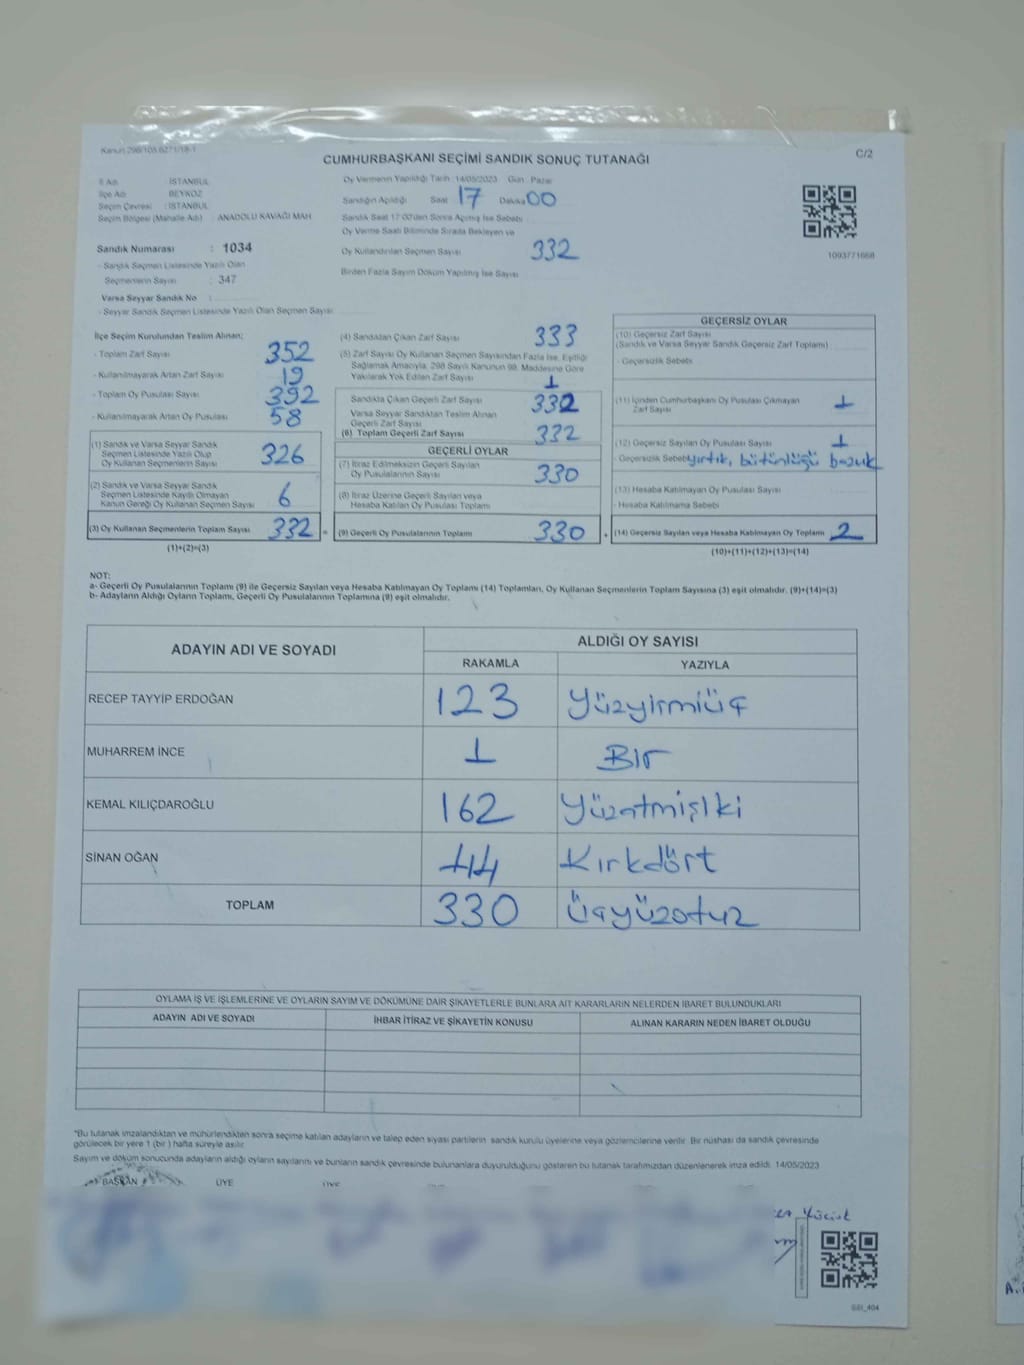 Kanun 298/105.6271/18-1
CUMHURBAŞKANI SEÇİMİ SANDIK SONUÇ TUTANAĞI
C/2
İl Adı : İSTANBUL
İlçe Adı : BEYKOZ
Seçim Çevresi : İSTANBUL
Seçim Bölgesi (Mahalle Adı) : ANADOLU KAVAĞI MAH
Sandık Numarası : 1034
- Sandık Seçmen Listesinde Yazılı Olan
Seçmenlerin Sayısı : 347
Varsa Seyyar Sandık No :
- Seyyar Sandık Seçmen Listesinde Yazılı Olan Seçmen Sayısı :
Oy Vermenin Yapıldığı Tarih : 14/05/2023 Gün : Pazar
Sandığın Açıldığı Saat : 17 Dakika : 00
Sandık Saat 17:00'den Sonra Açılmış İse Sebebi :
Oy Verme Saati Bitiminde Sırada Bekleyen ve
Oy Kullandırılan Seçmen Sayısı : 332
Birden Fazla Sayım Döküm Yapılmış İse Sayısı :
1093771668
İlçe Seçim Kurulundan Teslim Alınan;
- Toplam Zarf Sayısı : 352
- Kullanılmayarak Artan Zarf Sayısı : 19
- Toplam Oy Pusulası Sayısı : 392
- Kullanılmayarak Artan Oy Pusulası : 58
(1) Sandık ve Varsa Seyyar Sandık
Seçmen Listesinde Yazılı Olup
Oy Kullanan Seçmenlerin Sayısı : 326
(2) Sandık ve Varsa Seyyar Sandık
Seçmen Listesinde Kayıtlı Olmayan
Kanun Gereği Oy Kullanan Seçmen Sayısı : 6
(3) Oy Kullanan Seçmenlerin Toplam Sayısı : 332 =
(1)+(2)=(3)
(4) Sandıktan Çıkan Zarf Sayısı : 333
(5) Zarf Sayısı Oy Kullanan Seçmen Sayısından Fazla İse, Eşitliği
Sağlamak Amacıyla, 298 Sayılı Kanunun 98. Maddesine Göre
Yakılarak Yok Edilen Zarf Sayısı : 1
Sandıkta Çıkan Geçerli Zarf Sayısı : 332
Varsa Seyyar Sandıktan Teslim Alınan
Geçerli Zarf Sayısı :
(6) Toplam Geçerli Zarf Sayısı : 332
GEÇERLİ OYLAR
(7) İtiraz Edilmeksizin Geçerli Sayılan
Oy Pusulalarının Sayısı : 330
(8) İtiraz Üzerine Geçerli Sayılan veya
Hesaba Katılan Oy Pusulası Toplamı :
(9) Geçerli Oy Pusulalarının Toplamı : 330 +
GEÇERSİZ OYLAR
(10) Geçersiz Zarf Sayısı
(Sandık ve Varsa Seyyar Sandık Geçersiz Zarf Toplamı) :
- Geçersizlik Sebebi :
(11) İçinden Cumhurbaşkanı Oy Pusulası Çıkmayan
Zarf Sayısı : 1
(12) Geçersiz Sayılan Oy Pusulası Sayısı : 1
- Geçersizlik Sebebi : yırtık, bütünlüğü bozuk
(13) Hesaba Katılmayan Oy Pusulası Sayısı :
- Hesaba Katılmama Sebebi :
(14) Geçersiz Sayılan veya Hesaba Katılmayan Oy Toplamı : 2
(10)+(11)+(12)+(13)=(14)
NOT:
a- Geçerli Oy Pusulalarının Toplamı (9) ile Geçersiz Sayılan veya Hesaba Katılmayan Oy Toplamı (14) Toplamları, Oy Kullanan Seçmenlerin Toplam Sayısına (3) eşit olmalıdır. (9)+(14)=(3)
b- Adayların Aldığı Oyların Toplamı, Geçerli Oy Pusulalarının Toplamına (9) eşit olmalıdır.
ADAYIN ADI VE SOYADI
ALDIĞI OY SAYISI
RAKAMLA YAZIYLA
RECEP TAYYİP ERDOĞAN 123 Yüzyirmiüç
MUHARREM İNCE 1 Bir
KEMAL KILIÇDAROĞLU 162 Yüzatmışİki
SİNAN OĞAN 44 Kırkdört
TOPLAM 330 üçyüzotuz
OYLAMA İŞ VE İŞLEMLERİNE VE OYLARIN SAYIM VE DÖKÜMÜNE DAİR ŞİKAYETLERLE BUNLARA AİT KARARLARIN NELERDEN İBARET BULUNDUKLARI
ADAYIN ADI VE SOYADI İHBAR İTİRAZ VE ŞİKAYETİN KONUSU ALINAN KARARIN NEDEN İBARET OLDUĞU
"Bu tutanak imzalandıktan ve mühürlendikten sonra seçime katılan adayların ve talep eden siyasi partilerin sandık kurulu üyelerine veya gözlemcilerine verilir. Bir nüshası da sandık çevresinde
görülecek bir yere 1 (bir) hafta süreyle asılır.
Sayım ve döküm sonucunda adayların aldığı oyların sayılarını ve bunların sandık çevresinde bulunanlara duyurulduğunu gösteren bu tutanak tarafımızdan düzenlenerek imza edildi. 14/05/2023
BAŞKAN ÜYE ÜYE
SSI_404